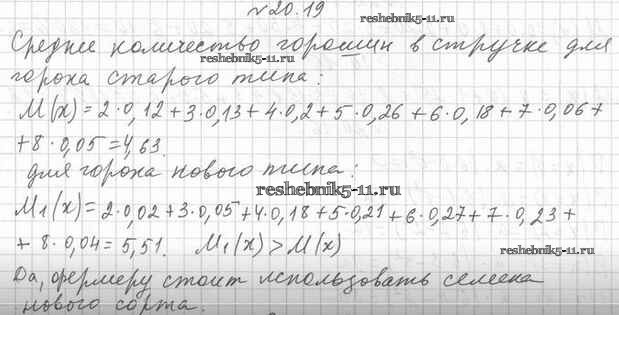 №20.19
reshebnik5-11.ru
Среднее количество горошин в стручке для
reshebnik5-11.ru
гороха старого типа:
M(x)=2·0,12+3·0,13+4·0,2+5·0,26+6·0,18+7·0,06+
+8·0,05=4,63.
для гороха нового типа:
reshebnik5-11.ru
M₁(x)=2·0,02+3·0,05+4·0,18+5·0,21+6·0,27+7·0,23+
+8·0,04=5,51. M₁(x)>M(x)
reshebnik5-11.ru
Да, фермеру стоит использовать семена
нового сорта.